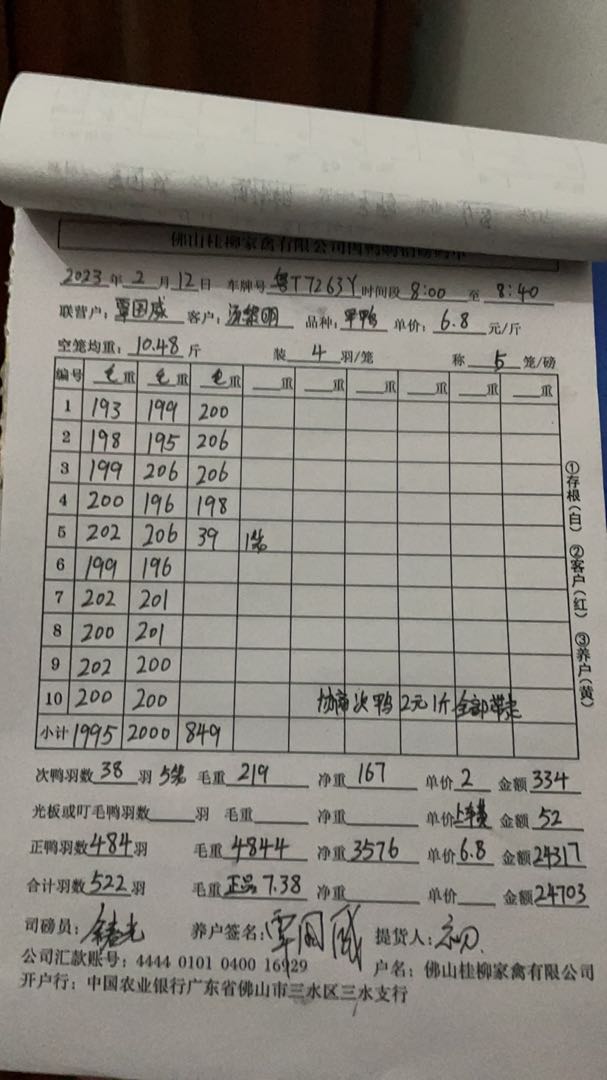 佛山桂柳家禽有限公司
2023年2月12日 车牌号 粤T7263Y 时间段 8:00 至 8:40
联营户: 覃国威 客户: 品种: 单价: 6.8 元/斤
空笼均重: 10.48 斤 装 4 羽/笼 称 5 笼/磅
编号 毛重 毛重 毛重 重 重 重 重 重 重
1 193 199 200
2 198 195 206
3 199 206 206
4 200 196 198
5 202 206 39 1笼
6 199 196
7 202 201
8 200 201
9 202 200
10 200 200 协商次鸭2元1斤全部带走
小计 1995 2000 849
①存根(白) ②客户(红) ③养户(黄)
次鸭羽数 38 羽 5笼 毛重 219 净重 167 单价 2 金额 334
光板或叮毛鸭羽数 羽 毛重 净重 单价 上车费 金额 52
正鸭羽数 484 羽 毛重 4844 净重 3576 单价 6.8 金额 24317
合计羽数 522 羽 毛重 正品7.38 净重 单价 金额 24703
司磅员: 养户签名: 覃国威 提货人:
公司汇款账号: 4444 0101 0400 16929 户名: 佛山桂柳家禽有限公司
开户行: 中国农业银行广东省佛山市三水区三水支行